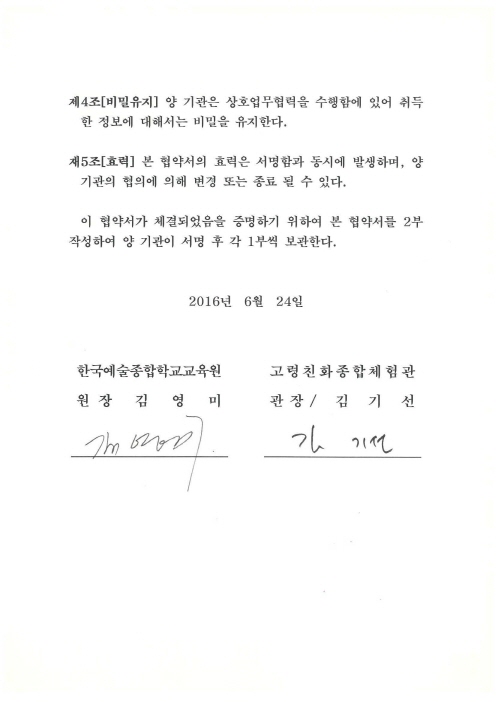 제4조[비밀유지] 양 기관은 상호업무협력을 수행함에 있어 취득
한 정보에 대해서는 비밀을 유지한다.
제5조[효력] 본 협약서의 효력은 서명함과 동시에 발생하며, 양
기관의 협의에 의해 변경 또는 종료 될 수 있다.
이 협약서가 체결되었음을 증명하기 위하여 본 협약서를 2부
작성하여 양 기관이 서명 후 각 1부씩 보관한다.
2016년 6월 24일
한국예술종합학교교육원
원 장 김 영 미
고령친화종합체험관
관 장 / 김 기 선
김 영미
김 기선